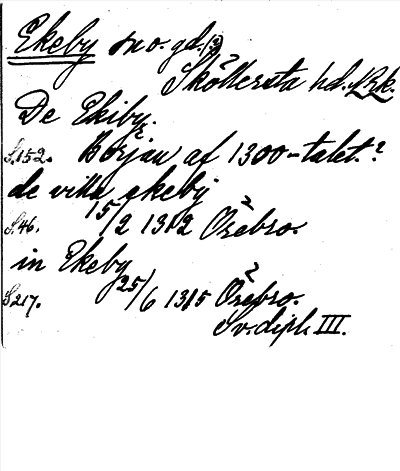 Ekeby sn o. gd. (?)
Sköllersta hd. Nrk.
De Ekiby.
S. 152. Början af 1300-talet.?
de villa ekeby
S. 46. 15/2 1312 Örebro.
in Ekeby
S. 217. 25/6 1315 Örebro.
Sv. dipl. III.